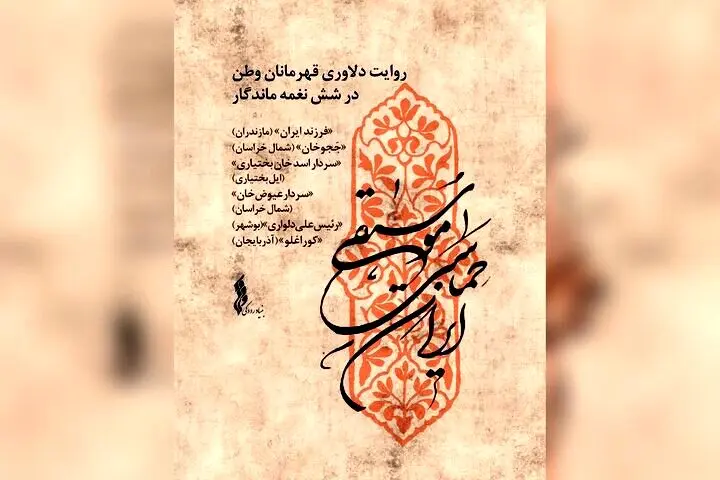 روایت دلاوری قهرمانان وطن
در شش نغمه ماندگار
«فرزند ایران» (مازندران)
«ججوخان» (شمال خراسان)
«سردار اسد خان بختیاری»
(ایل بختیاری)
«سردار عیوض خان»
(شمال خراسان)
«رئیس علی دلواری» (بوشهر)
«کوراغلو» (آذربایجان)
موسیقی
حماسی
ایران
بنیاد رودکی